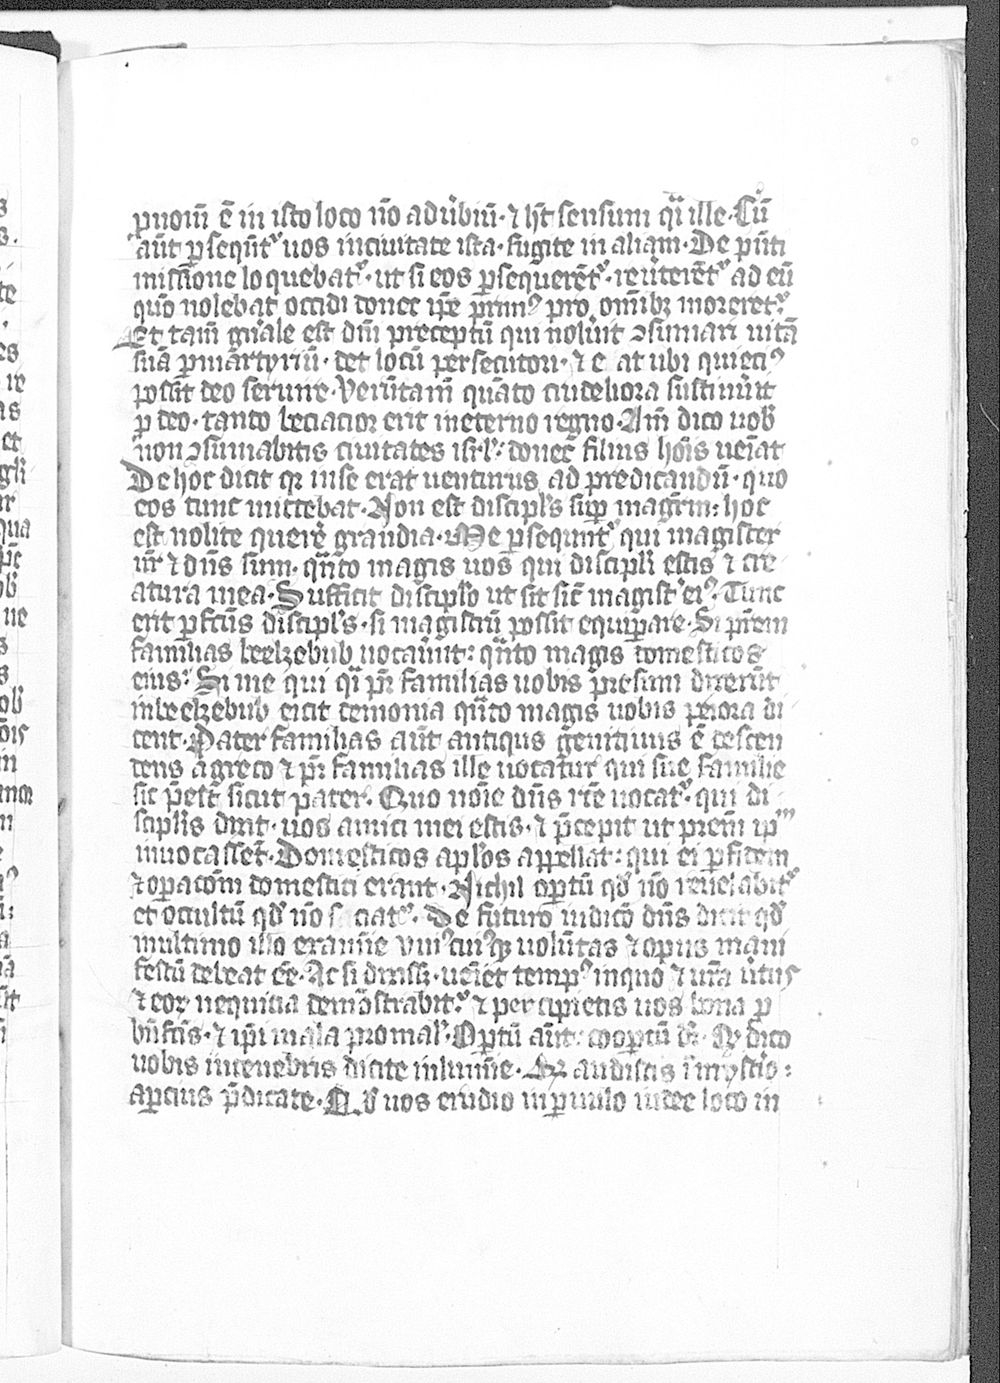 pnom̄ ē in isto loco nō adũbiū · ⁊ hn̄t sensum qͣi ille · Cū
aūt ꝑsequnt᷒ uos inciuitate ista · fugite in aliam · De pn̄ti
missione loquebat᷒ · ut si eos ꝑsequerēt᷒ · reũterēt᷒ ad eū
quō nolebat occidi donec ip̄e p̄mꝰ pro omībꝫ moreret᷒
Et tam̄ gn̄ale est dnī preceptū qui nolũnt ↄsumari uitā
suā ꝑmartyriū · det locū persecutori · ⁊ e at ubi quiecꝰ
possit deo seruire · Verūtam̄ quāto crudeliora sustinũit
ꝓ deo · tanto leciacior erit ineterno regno · Am̄ dico uob̄
non ↄsumabitis ciuitates isrl̄ : donec filius hoīs ueīat
De hoc dicit qꝛ inse erat uenturus ad predicandū · quo
eos tunc mictebat · Non est discipl̄s suꝑ magr̄m : hoc
est nolite querē graudia · Me ꝑsequnt᷒ qui magister
ur̄ ⁊ dn̄s sum · qn̄to magis uos qui discipl̄i estis ⁊ cre
atura mea · Sufficit discipl̄o ut sit sic̄ magistͬ eiꝰ · Tunc
erit ꝑfctūs discipl̄s · si magistrū possit equiꝑare · Si pr̄em
familias beelzebub uocaũnt : qn̄to magis domesticos
eius · Si me qui qͣi pr̄ familias uobis presum dixerūt
inbeelzebub eicit demonia qn̄to magis uobis peiora di
cent · Pater familias aūt antiqus genitiuus ē descen
dens agreco ⁊ pr̄ familias ille uocatur qui sue familie
sic p̄est sicut pater · Quo noīe dn̄s rc̄e uocat᷒ · qui di
scipl̄is dixit · uos amici mei estis · ⁊ p̄cepit ut prem̄ ipͫ
inuocassēt · Domesticos apl̄os appellat : qui ei ꝑfidem
⁊ opacōm domestici erant · Nichil oꝑtū qd̄ nō reuelabit᷒
et occultū qd̄ nō sciat᷒ · De futuro iudico dn̄s dicit qd̄
inultimo illo examīe vniꝰcuiꝰqꝫ uolūtas ⁊ opus mani
festū debeat eē · Ac si dixiss · uēiet tempꝰ inquo ⁊ ur̄a ũtus
⁊ eoꝝ nequicia demōstrabit᷒ ⁊ percipietis uos bona ꝓ
bn̄fctīs · ⁊ ip̄i mala promal̄ · Oꝑtū aūt : cooꝑtū dr̄ · Qꝫ dico
uobis intenebris dicite inlumīe · Et qꝫ audistis ī mysterio :
aꝑcius p̄dicate · uos erudio inꝑuulo iudee loco in